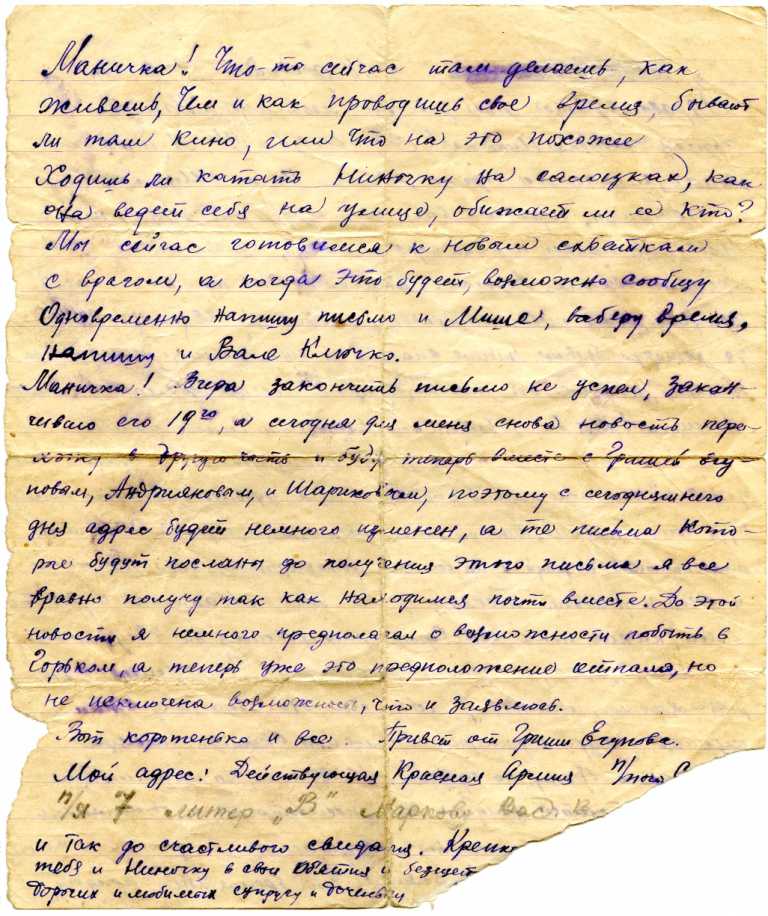 Маничка! Что-то сейчас там делаешь, как
живешь, чем и как проводишь свое время, бывают
ли там кино, или что на это похожее
Ходишь ли катать Ниночку на салазках, как
она ведет себя на улице, обижает ли ее кто?
Мы сейчас готовимся к новым схваткам
с врагом, а когда это будет, возможно сообщу
Одновременно напишу письмо и Мише, выберу время,
напишу и Вале Клычко.
Маничка! Вчера закончить письмо не успел, закан-
чиваю его 19го, а сегодня для меня снова новость пере-
хожу в другую часть и буду теперь вместе с Гришей Егу-
повым, Андрияковым, и Шариковым, поэтому с сегодняшнего
дня адрес будет немного изменен, а те письма кото-
рые будут посланы до получения этого письма я все
вравно получу так как находимся почти вместе. До этой
новости я немного предполагал о возможности побыть в
Горьком, а теперь уже это предположение отпало, но
не исключена возможность, что и заявлюсь.
Вот коротенько и все. Привет от Гриши Егупова.
Мой адрес: Действующая Красная Армия п/того
п/я 7 литер „В" Маркову
и так до счастливого свидания. Крепко
тебя и Ниночку в свои объятия и безщет
дорогих и любимых супругу и доченьку